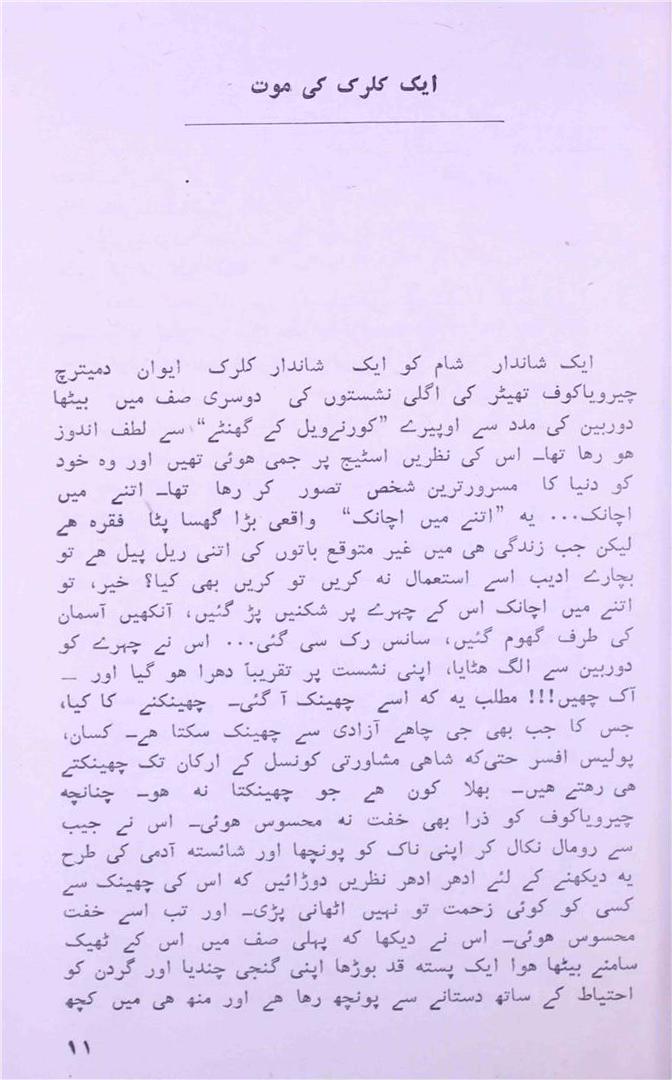 ایک کلرک کی موت
ایک شاندار شام کو ایک شاندار کلرک ایوان دمیترچ
چیرویاکوف تھیٹر کی اگلی نشستوں کی دوسری صف میں بیٹھا
دوربین کی مدد سے اوپیرے ”کورنےویل کے گھنٹے“ سے لطف اندوز
ہو رہا تھا۔ اس کی نظریں اسٹیج پر جمی ہوئی تھیں اور وہ خود
کو دنیا کا مسرورترین شخص تصور کر رہا تھا۔ اتنے میں
اچانک... یہ ”اتنے میں اچانک“ واقعی بڑا گھسا پٹا فقرہ ہے
لیکن جب زندگی ہی میں غیر متوقع باتوں کی اتنی ریل پیل ہے تو
بچارے ادیب اسے استعمال نہ کریں تو کریں بھی کیا؟ خیر، تو
اتنے میں اچانک اس کے چہرے پر شکنیں پڑ گئیں، آنکھیں آسمان
کی طرف گھوم گئیں، سانس رک سی گئی... اس نے چہرے کو
دوربین سے الگ ہٹایا، اپنی نشست پر تقریباً دہرا ہو گیا اور —
آک چھیں!!! مطلب یہ کہ اسے چھینک آ گئی۔ چھینکنے کا کیا،
جس کا جب بھی جی چاہے آزادی سے چھینک سکتا ہے۔ کسان،
پولیس افسر حتی‌کہ شاہی مشاورتی کونسل کے ارکان تک چھینکتے
ہی رہتے ہیں۔ بھلا کون ہے جو چھینکتا نہ ہو۔ چنانچہ
چیرویاکوف کو ذرا بھی خفت نہ محسوس ہوئی۔ اس نے جیب
سے رومال نکال کر اپنی ناک کو پونچھا اور شائستہ آدمی کی طرح
یہ دیکھنے کے لئے ادھر ادھر نظریں دوڑائیں کہ اس کی چھینک سے
کسی کو کوئی زحمت تو نہیں اٹھانی پڑی۔ اور تب اسے خفت
محسوس ہوئی۔ اس نے دیکھا کہ پہلی صف میں اس کے ٹھیک
سامنے بیٹھا ہوا ایک پستہ قد بوڑھا اپنی گنجی چندیا اور گردن کو
احتیاط کے ساتھ دستانے سے پونچھ رہا ہے اور منھ ہی میں کچھ
۱۱